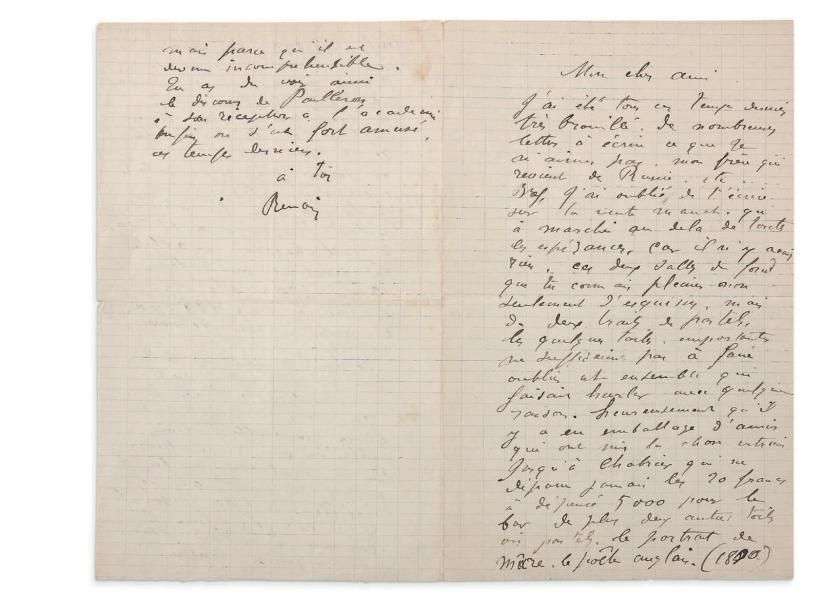 Mon cher ami
J'ai été tous ces temps derniers
très brouillé. De nombreuses
lettres à écrire ce que je
n'aime pas. mon frère qui
revient de Russie, etc.
Bref, j'ai oublié de t'écrire
sur la vente manet. qui
a marché au dela de toutes
les espérances, car il n'y avait
rien. ces deux salles du fond
que tu connais pleines non
seulement d'esquisses, mais
de deux bouts de pastels,
les quelques toiles importantes
ne suffisaient pas à faire
oublier cet ensemble qui
faisait hurler avec quelque
raison. heureusement qu'il
y a eu emballage d'amis
qui ont mis la chose en train
Jusqu'à Chabrier qui ne
dépense jamais les 20 francs
a dépensé 5000 pour le
bar de plus deux autres toiles
ou pastels. le portrait de
moore. le poète anglais. (1800)
mais parce qu'il est
devenu incompréhensible.
Tu as du voir aussi
le discours de Pailleron
à sa réception à l'academie
Enfin on s'est fort amusé,
ces temps derniers.
à toi
Renoir